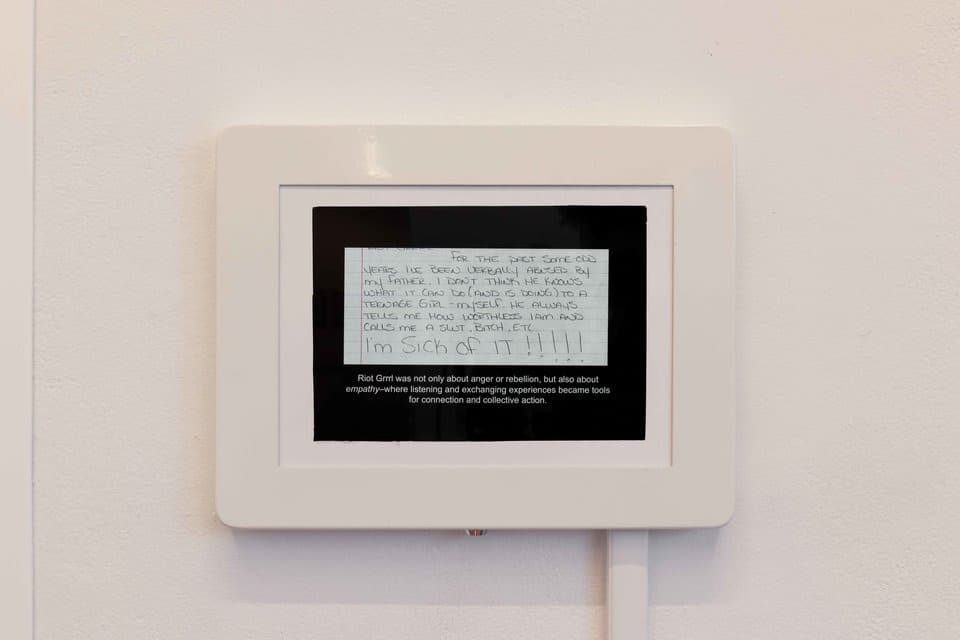 FOR THE PAST SOME ODD
YEARS I'VE BEEN VERBALLY ABUSED BY
MY FATHER. I DON'T THINK HE KNOWS
WHAT IT CAN DO (AND IS DOING) TO A
TEENAGE GIRL - MYSELF. HE ALWAYS
TELLS ME HOW WORTHLESS I AM AND
CALLS ME A SLUT, BITCH, ETC.
I'm Sick of IT !!!!!
Riot Grrrl was not only about anger or rebellion, but also about
empathy–where listening and exchanging experiences became tools
for connection and collective action.